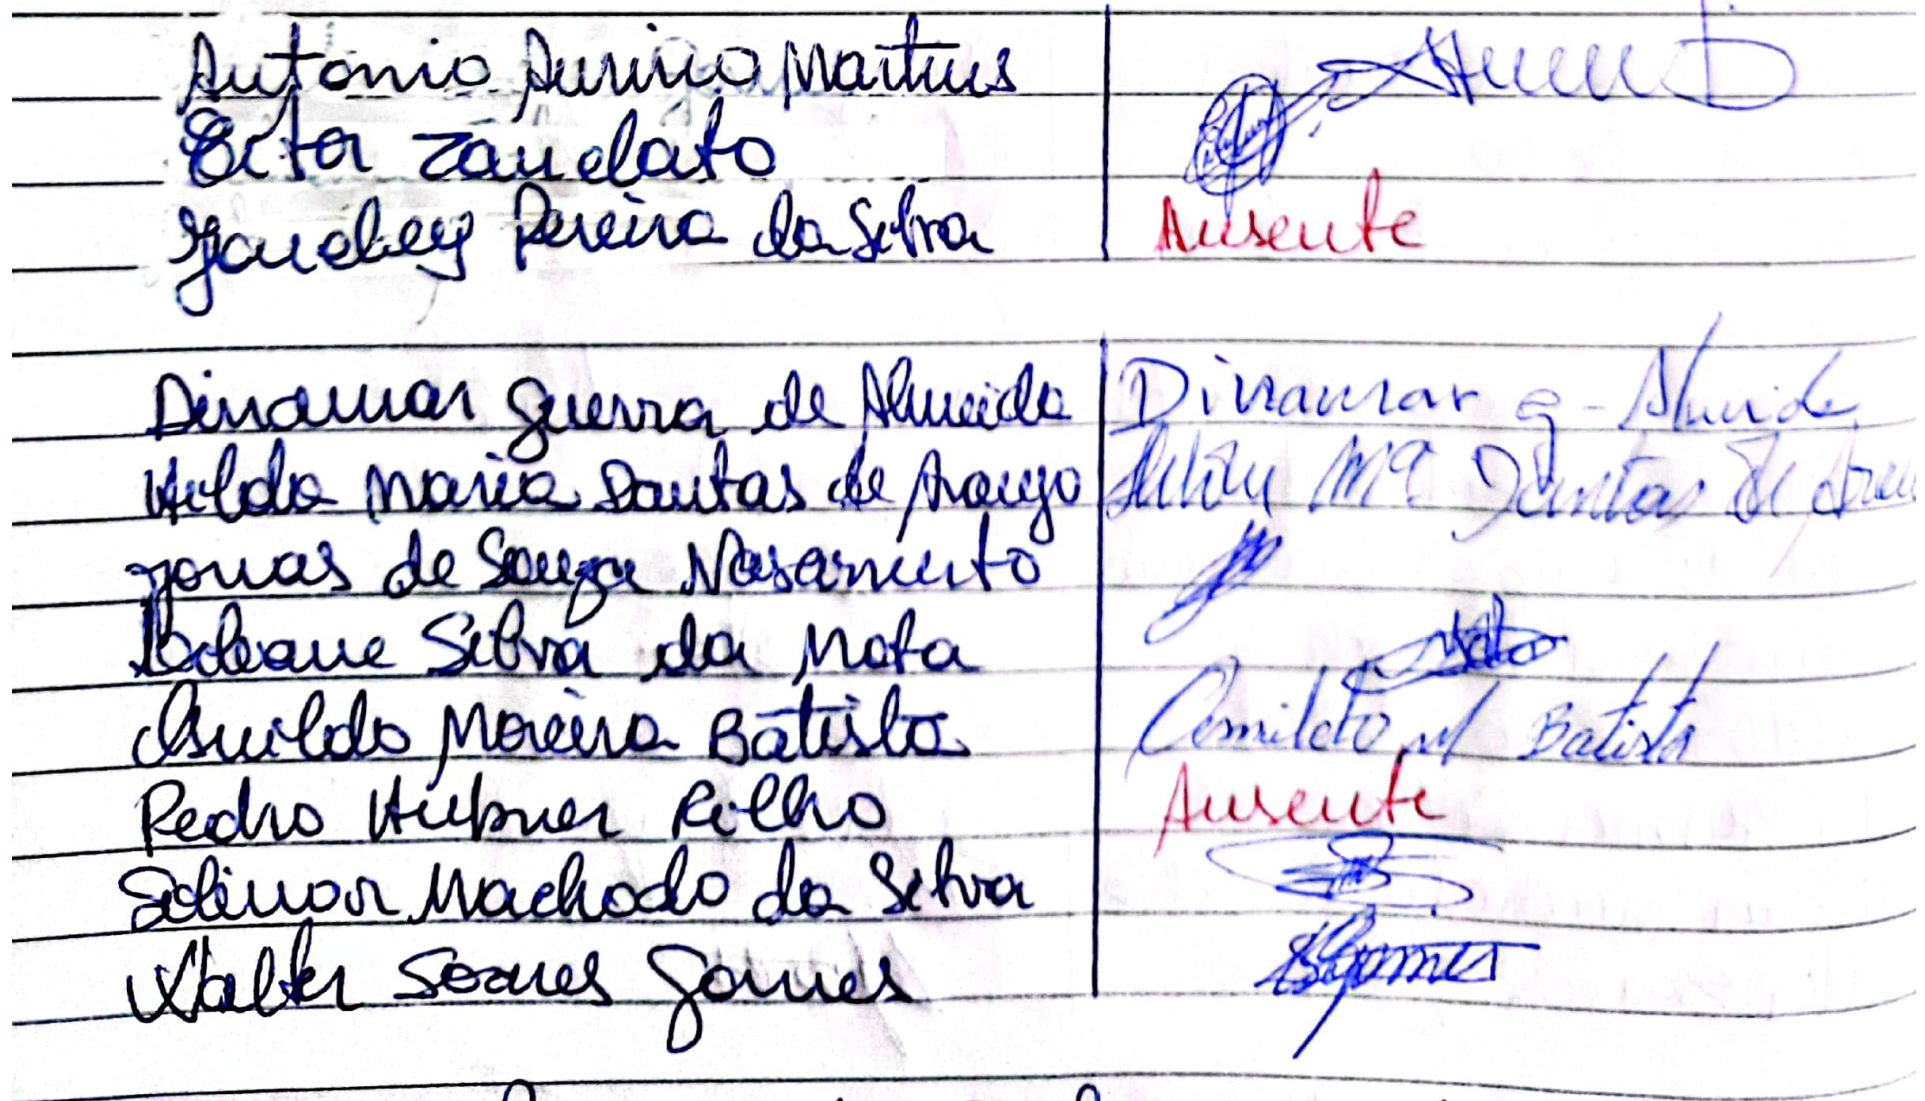 Antonio Aurino Martins
Ector Zandato
Jandey Pereira da Silva Ausente
Dinamar Guerra de Almeida Dinamar G - Almeida
Hilda Maria Dantas de Araujo Mª Dantas de
Jonas de Souza Nasamento
Silva da Mota
Osvildo Moreira Batista M Batista
Pedro Hubner Filho Ausente
Solimar Machado da Silva
Walter Soares Gomes Gomes